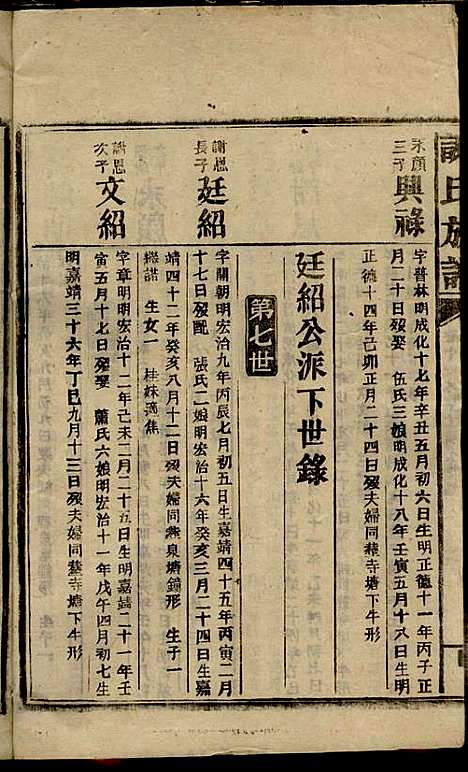 謝氏族譜
永顏
三子
興祿
字普林明成化十七年辛丑五月初六日生明正德十一年丙子正
月二十日歿娶 伍氏三娘明成化十八年壬寅五月十八日生明
正德十四年己卯正月二十四日歿夫婦同葬寺塘下牛形
廷紹公派下世錄
第七世
謝恩
長子
廷紹
字關朝明宏治九年丙辰七月初五日生嘉靖四十五年丙寅二月
十七日歿配 張氏二娘明宏治十六年癸亥三月二十四日生嘉
靖四十二年癸亥八月十二日歿夫婦同葬泉塘鐘形 生子一
生女一 桂妹適焦
謝恩
次子
文紹
字章明明宏治十二年己未二月二十五日生明嘉靖二十一年壬
寅五月十七日歿娶 蕭氏六娘明宏治十一年戊午四月初七生
明嘉靖三十六年丁巳九月十三日歿夫婦同葬寺塘下牛形